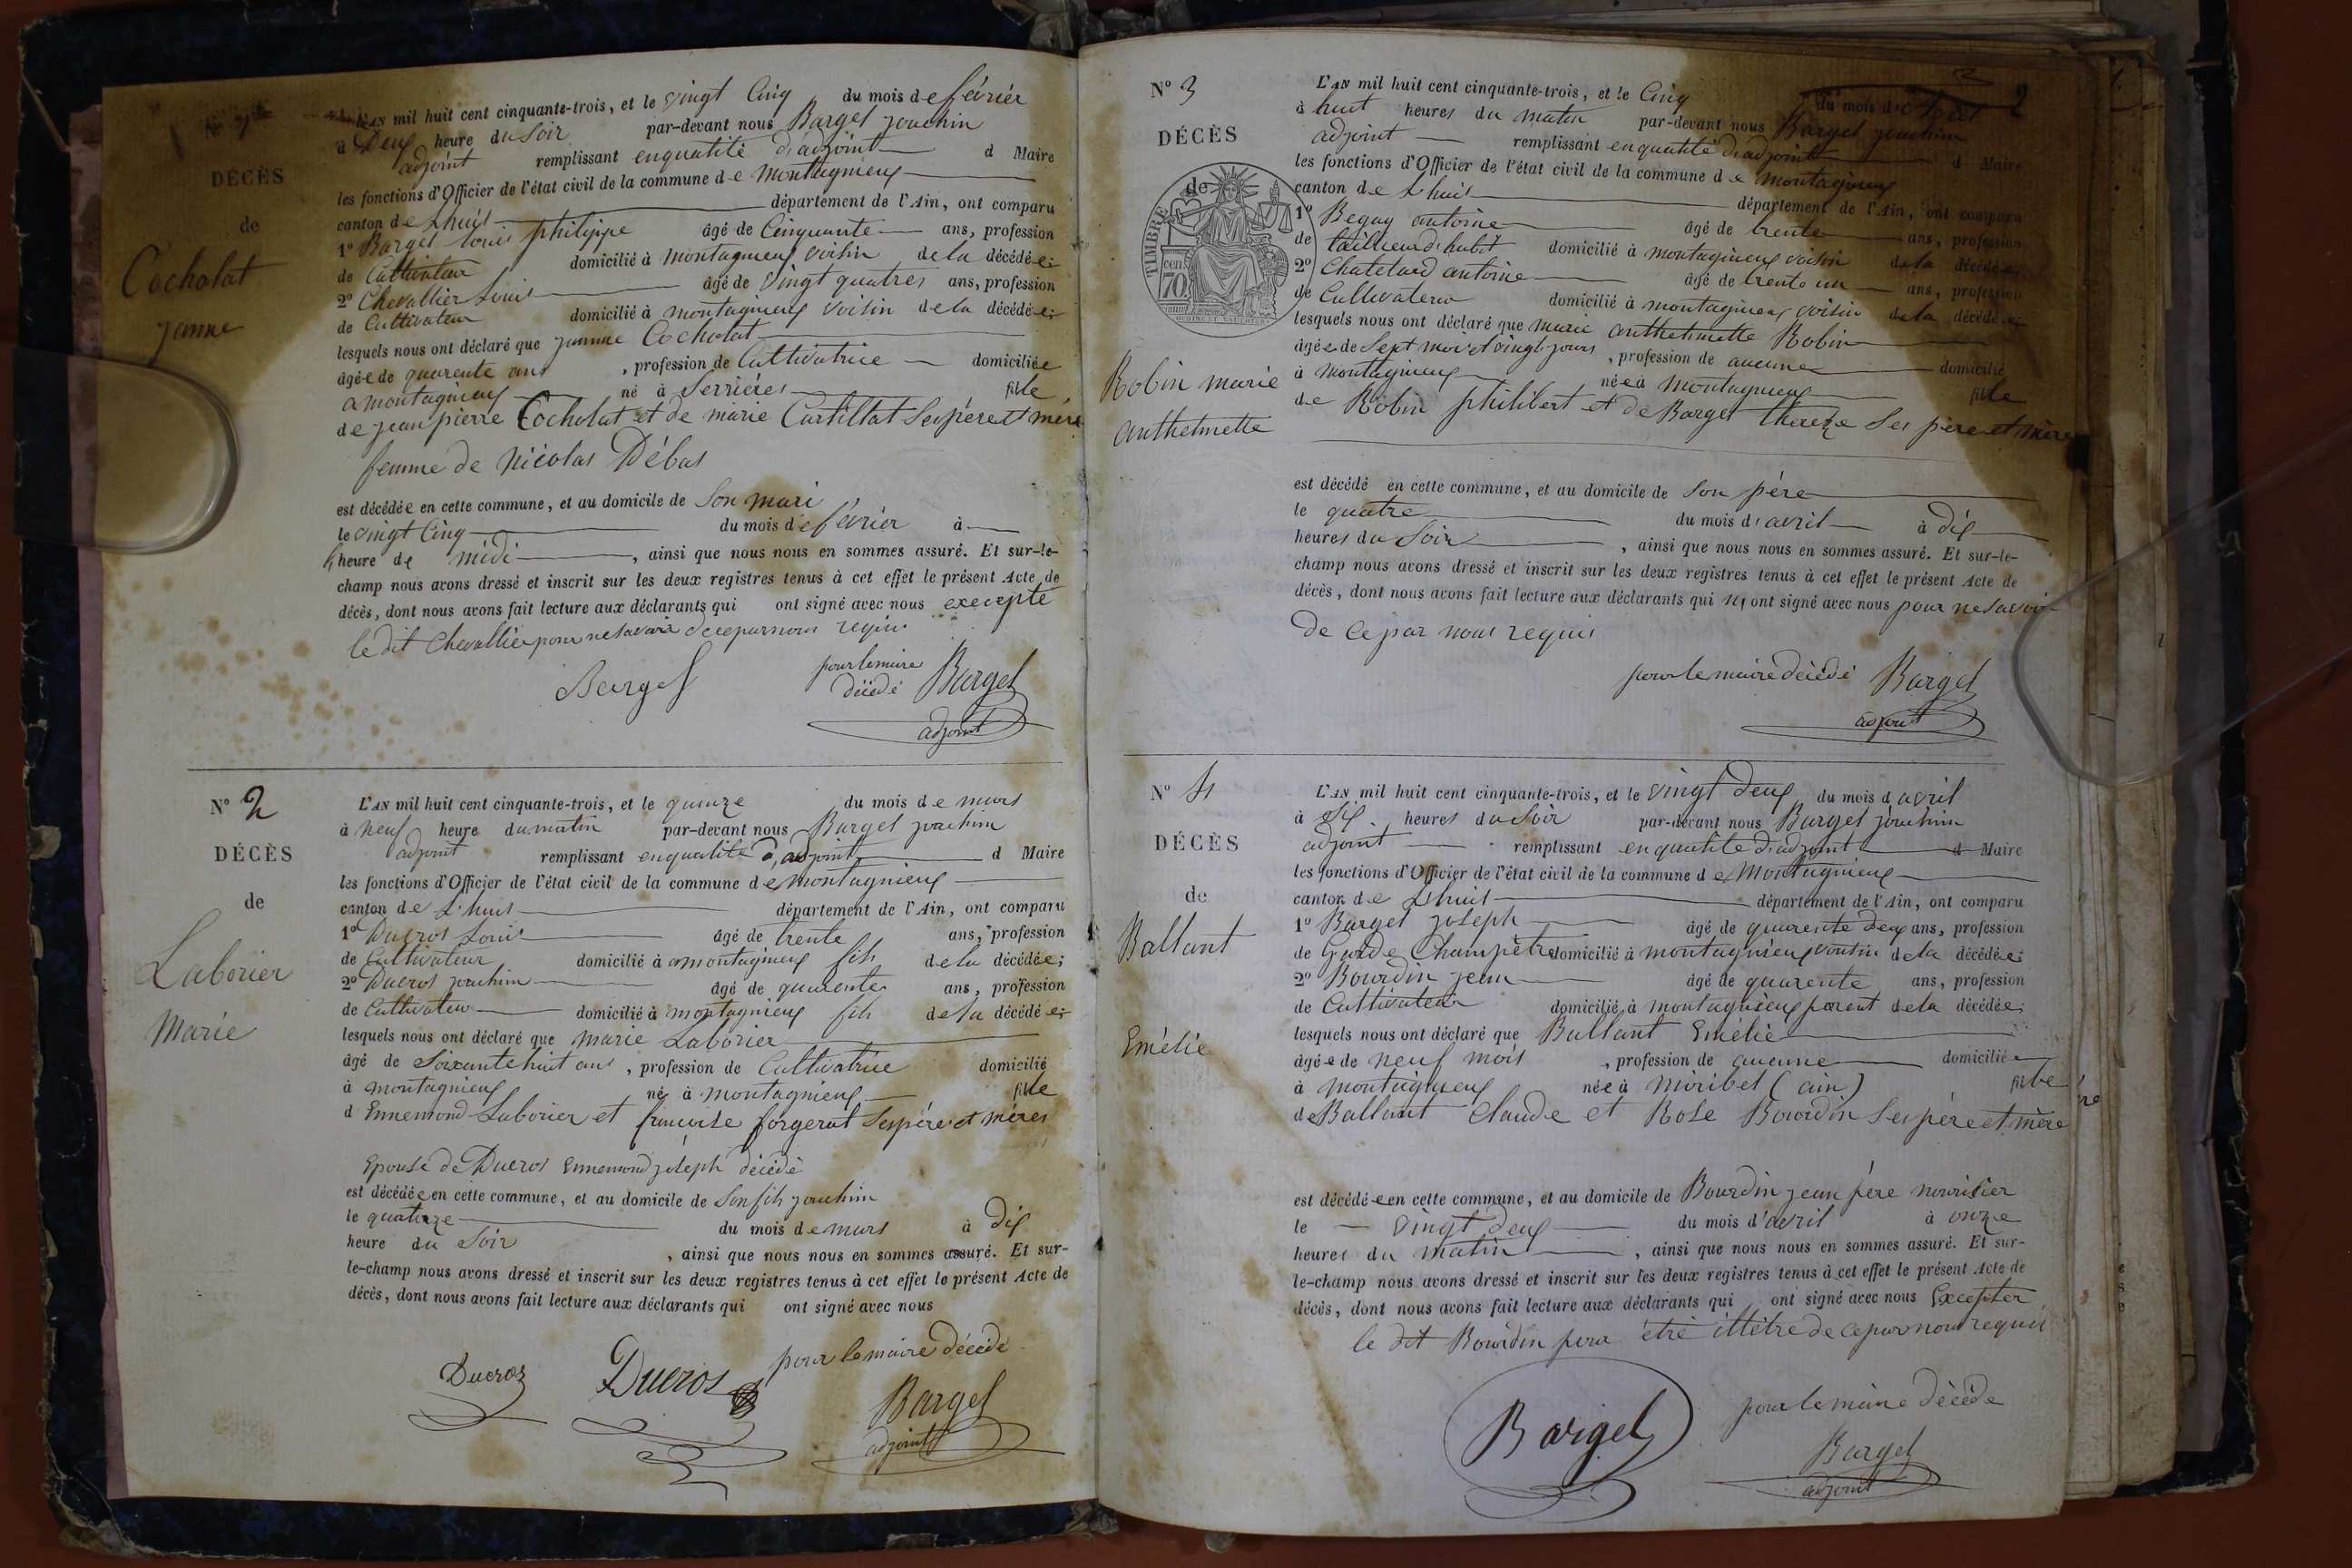 L'AN mil huit cent cinquante-trois, et le vingt Cinq du mois de février
à Deux heure du Soir par-devant nous Bargel joachin
adjoint remplissant enqualité d'adjoint d Maire
DÉCÈS
les fonctions d'Officier de l'état civil de la commune de Montagnieux
de
canton de Lhuis département de l'Ain, ont comparu
1° Bargel louis philippe âgé de Cinquante ans, profession
Cocholat
janne
de Cultivateur domicilié à montagnieux voisin de la décédée;
2° Chevallier Louis âgé de Vingt quatres ans, profession
de Cultivateur domicilié à montagnieux voisin de la décédée;
lesquels nous ont déclaré que janne Cocholat
âgée de quarente ans, profession de Cultivatrice domiciliée
a montagnieux né à Serrières fille
de jean pierre Cocholat et de marie Cartillat Ses père et mère
femme de Nicolas Débas
est décédée en cette commune, et au domicile de Son mari
le vingt Cinq du mois de février à
heure de midi, ainsi que nous nous en sommes assuré. Et sur-le-
champ nous avons dressé et inscrit sur les deux registres tenus à cet effet le présent Acte de
décès, dont nous avons fait lecture aux déclarants qui ont signé avec nous excepté
le dit Chevallier pour ne savoir de ce par nous requis
Bargel pour le maire décédé Bargel
adjoint
N° 2
DÉCÈS
de
Laborier
Marie
L'AN mil huit cent cinquante-trois, et le quinze du mois de mars
à neuf heure du matin par-devant nous Bargel joachim
adjoint remplissant enqualité d'adjoint d Maire
les fonctions d'Officier de l'état civil de la commune de Montagnieux
canton de L'huis département de l'Ain, ont comparu
1° Ducros Louis âgé de trente ans, profession
de Cultivateur domicilié à montagnieux fils de la décédée;
2° Ducros joachim âgé de quarente ans, profession
de Cultivateur domicilié à montagnieux fils de la décédée;
lesquels nous ont déclaré que marie Laborier
âgé de Soixante huit ans, profession de Cultivatrice domicilié
à montagnieux né à montagnieux fille
d Ennemond Laborier et francoise forgerat Ses père et mères
Epouse de Ducros Ennemond joseph décédé
est décédée en cette commune, et au domicile de Son fils joachim
le quatorze du mois de mars à dix
heure du Soir, ainsi que nous nous en sommes assuré. Et sur-
le-champ nous avons dressé et inscrit sur les deux registres tenus à cet effet le présent Acte de
décès, dont nous avons fait lecture aux déclarants qui ont signé avec nous
Ducroz Ducros pour le maire décédé
Bargel
adjoint
2
N° 3
DÉCÈS
de
TIMBRE
cen. 70.
Robin marie
anthelmette
L'AN mil huit cent cinquante-trois, et le Cinq du mois d'avril
à huit heures du matin par-devant nous Bargel joachim
adjoint remplissant enqualité d'adjoint d Maire
les fonctions d'Officier de l'état civil de la commune de montagnieux
canton de L'huis département de l'Ain, ont comparu
1° Beguy antoine âgé de trente ans, profession
de tailleur d'habit domicilié à montagnieux voisin de la décédée
2° Chatelard antoine âgé de trente un ans, profession
de Cultivateur domicilié à montagnieux voisin de la décédée
lesquels nous ont déclaré que marie anthelmette Robin
âgée de Sept mois et vingt jours, profession de aucune domicilié
à Montagnieux née à Montagnieux fille
de Robin philibert et de Bargel thereze Ses père et mère
est décédé en cette commune, et au domicile de Son père
le quatre du mois d'avril à dix
heures du Soir, ainsi que nous nous en sommes assuré. Et sur-le-
champ nous avons dressé et inscrit sur les deux registres tenus à cet effet le présent Acte de
décès, dont nous avons fait lecture aux déclarants qui n'ont signé avec nous pour ne savoir
de ce par nous requis
pour le maire décédé Bargel
adjoint
N° 4
DÉCÈS
de
Ballant
Emélie
L'AN mil huit cent cinquante-trois, et le Vingt deux du mois d avril
à Six heures du Soir par-devant nous Bargel joachim
adjoint remplissant enqualité d'adjoint d Maire
les fonctions d'Officier de l'état civil de la commune de Montagnieux
canton de Lhuis département de l'Ain, ont comparu
1° Bargel joseph âgé de quarente deux ans, profession
de Garde Champêtre domicilié à montagnieux voisin de la décédée;
2° Bourdin jean âgé de quarente ans, profession
de Cultivateur domicilié à montagnieux parent de la décédée;
lesquels nous ont déclaré que Ballant Emelie
âgée de neuf mois, profession de aucune domiciliée
à Montagnieux née à Miribel (ain) fille
de Ballant Claude et Rose Bourdin Ses père et mère
est décédée en cette commune, et au domicile de Bourdin jean père nourisier
le vingt deux du mois d'avril à onze
heures du matin, ainsi que nous nous en sommes assuré. Et sur-
le-champ nous avons dressé et inscrit sur les deux registres tenus à cet effet le présent Acte de
décès, dont nous avons fait lecture aux déclarants qui ont signé avec nous Excepter
le dit Bourdin pour être illétré de ce par nous requis
Bargel pour le maire décédé
Bargel
adjoint